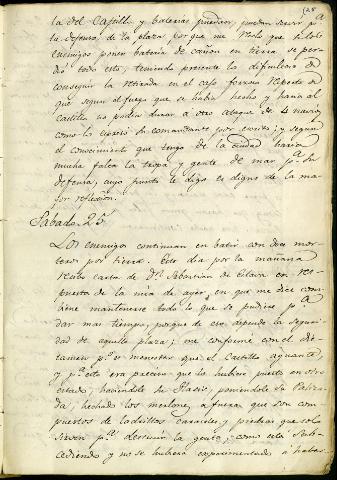 la del Castillo y baterias puedan, puedan servir pª
la defensa de la plaza porque me Melo que si los
enemigos ponen bateria de cañon en tierra se per-
dio todo esto, teniendo presente la dificultad de
conseguir la retirada en el caso forzoso respecto de
que segun el fuego que se havia hecho y hacia al
Castillo no podia durar a otro ataque de 4 navios
como lo expuso su comandante por escrito; y segun
el conocimiento que tengo de la ciudad haria
mucha falta la tropa y gente de mar pª su
defensa, cuyo punto le digo es digno de la ma-
yor reflexion.
Sabado 25
Los enemigos continuan en batir con doce mor-
teros por tierra. Este dia por la mañana
recivo carta de Dn. Sebastian de Eslava en res-
puesta de la mia de ayer, en que me dice con-
biene mantenerse todo lo que se pudiese pª
dar mas tiempo, porque de eso depende la seguri-
dad de aquella plaza; me conforme con el dic-
tamen pr. ser menester que el Castillo aguante,
y pª esto era preciso que lo hubiese puesto en otro
estado, haciendole su foso, poniendole su Paliza-
da, hechado los merlones a fuera que son com-
puestos de ladrillos caracoles, y piedras que solo
sirven pª destruir la gente, como esta suc-
cediendo y no se hubiera experimentado a haber